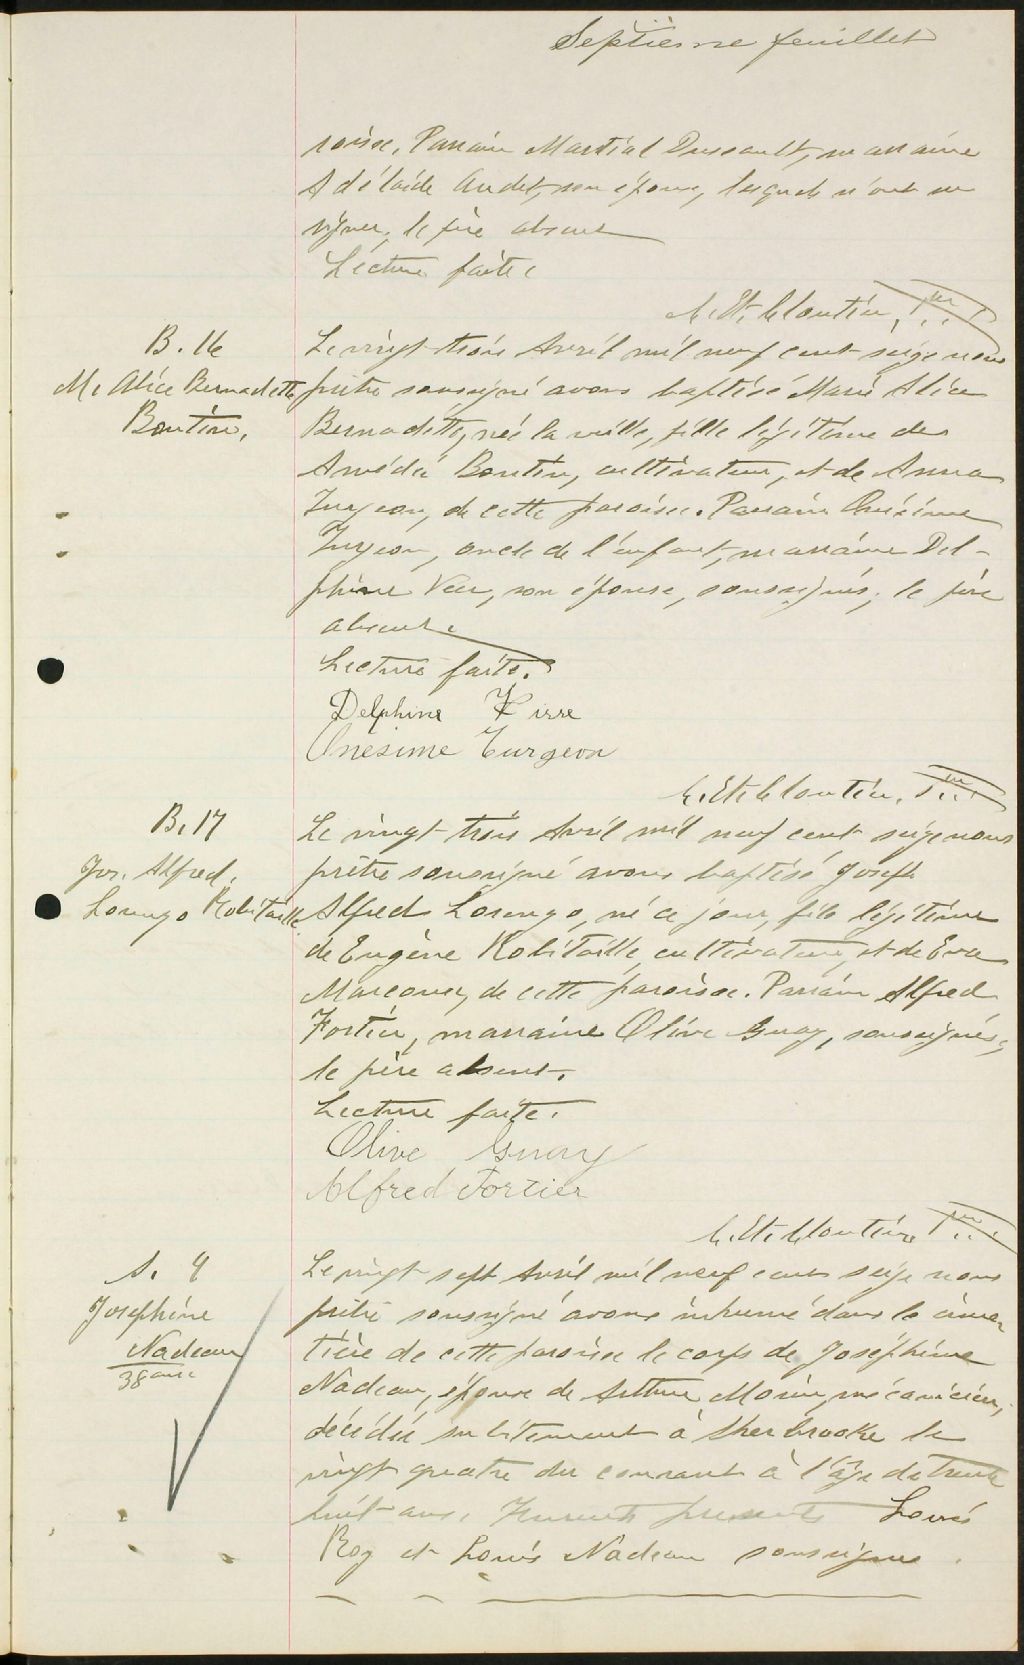 Septième feuillet
roisse. Parrain Martial Dussault, marraine
Adélaïde Audet, son épouse, lesquels n'ont su
signer, le père absent
Lecture faite.
Cloutier, Ptre
B. 16
M. Alice Bernadette
Boutin.
Le vingt trois Avril mil neuf cent seize nous
prêtre soussigné avons baptisé Marie Alice
Bernadette, née la veille, fille légitime de
Amédée Boutin, cultivateur, et de Anna
Turgeon, de cette paroisse. Parrain Onésime
Turgeon, oncle de l'enfant, marraine Del-
phine Veer, son épouse, soussignés, le père
absent.
Lecture faite.
Delphine
Onésime Turgeon
Cloutier, Ptre
B. 17
Jos. Alfred.
Lorenzo Robitaille
Le vingt trois Avril mil neuf cent seize nous
prêtre soussigné avons baptisé Joseph
Alfred Lorenzo, né ce jour, fils légitime
de Eugène Robitaille, cultivateur, et de Eva
Marcoux, de cette paroisse. Parrain Alfred
Fortier, marraine Olive Guay, soussignés,
le père absent.
Lecture faite.
Olive Guay
Alfred Fortier
Cloutier, Ptre
S. 4
Joséphine
Nadeau
38 ans
Le vingt sept Avril mil neuf cent seize nous
prêtre soussigné avons inhumé dans le cime-
tière de cette paroisse le corps de Joséphine
Nadeau, épouse de Arthur Morin, mécanicien,
décédée subitement à Sherbrooke le
vingt quatre du courant à l'âge de trente
huit ans. Furent présents Louis
Roy et Louis Nadeau soussignés.